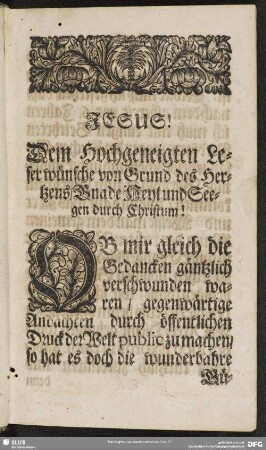 JESUS!
Dem Hochgeneigten Le-
ser wünsche von Grund des Her-
tzens/ Gnade Heyl und See-
gen durch Christum!
OB mir gleich die
Gedancken gäntzlich
verschwunden wa-
ren / gegenwärtige
Andachten durch öffentlichen
Druck der Welt public zu machen/
so hat es doch die wunderbahre
Gü-
SLUB
DFG